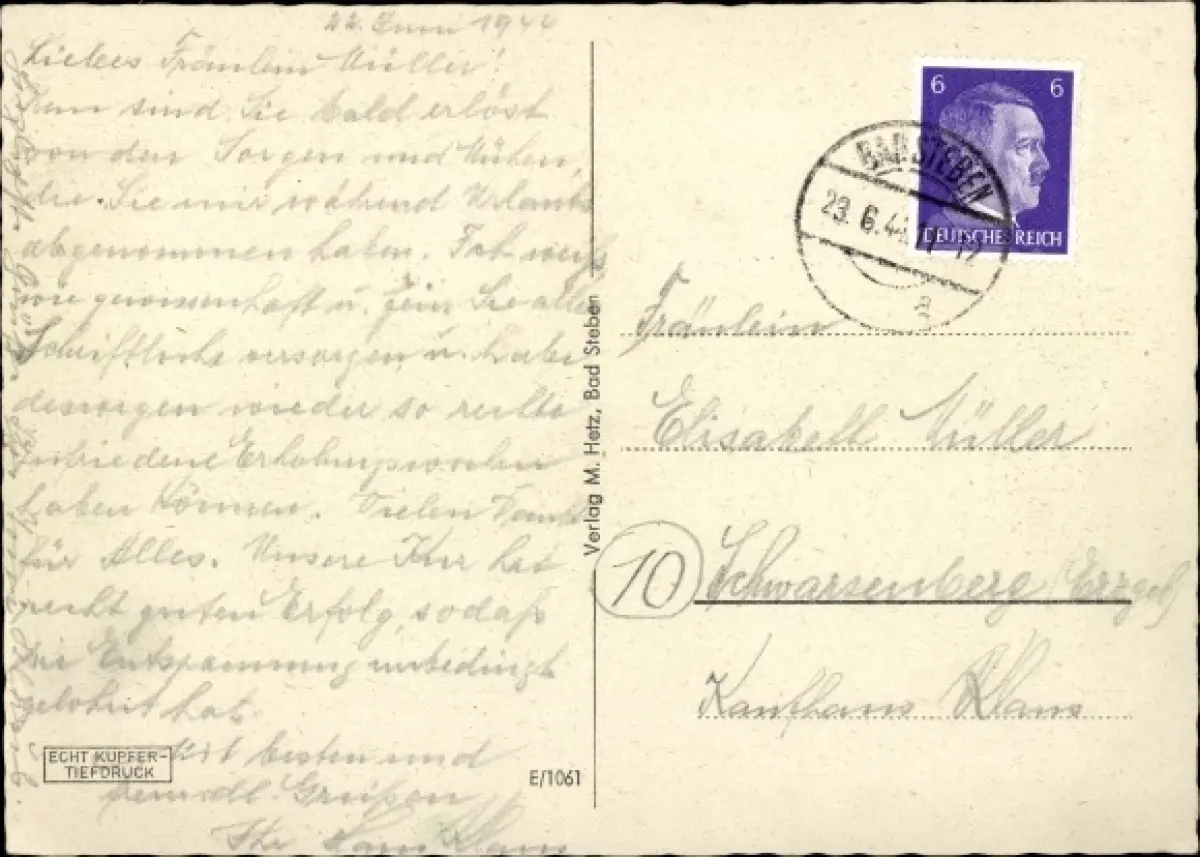 22. Juni 1944
Liebes Fräulein Müller!
Nun sind Sie bald erlöst
von den Sorgen und Mühen,
die Sie mir während Urlaubs
abgenommen haben. Ich weiß
wie gewissenhaft u. fein Sie alles
Schriftliche versorgen u. habe
deswegen wieder so rechte
zufriedene Erholungswochen
haben können. Vielen Dank
für Alles. Unsere Kur hat
recht guten Erfolg, sodaß
die Entspannung unbedingt
gelohnt hat.
Mit besten und
freundl. Grüßen
Ihr Hans Klaus
ECHT KUPFER-
TIEFDRUCK
E/1061
Verlag M. Hetz, Bad Steben
6 6
DEUTSCHES REICH
BAD STEBEN
23.6.44
a
Fräulein
Elisabeth Müller
10 Schwarzenberg Erzgeb
Kaufhaus Klaus